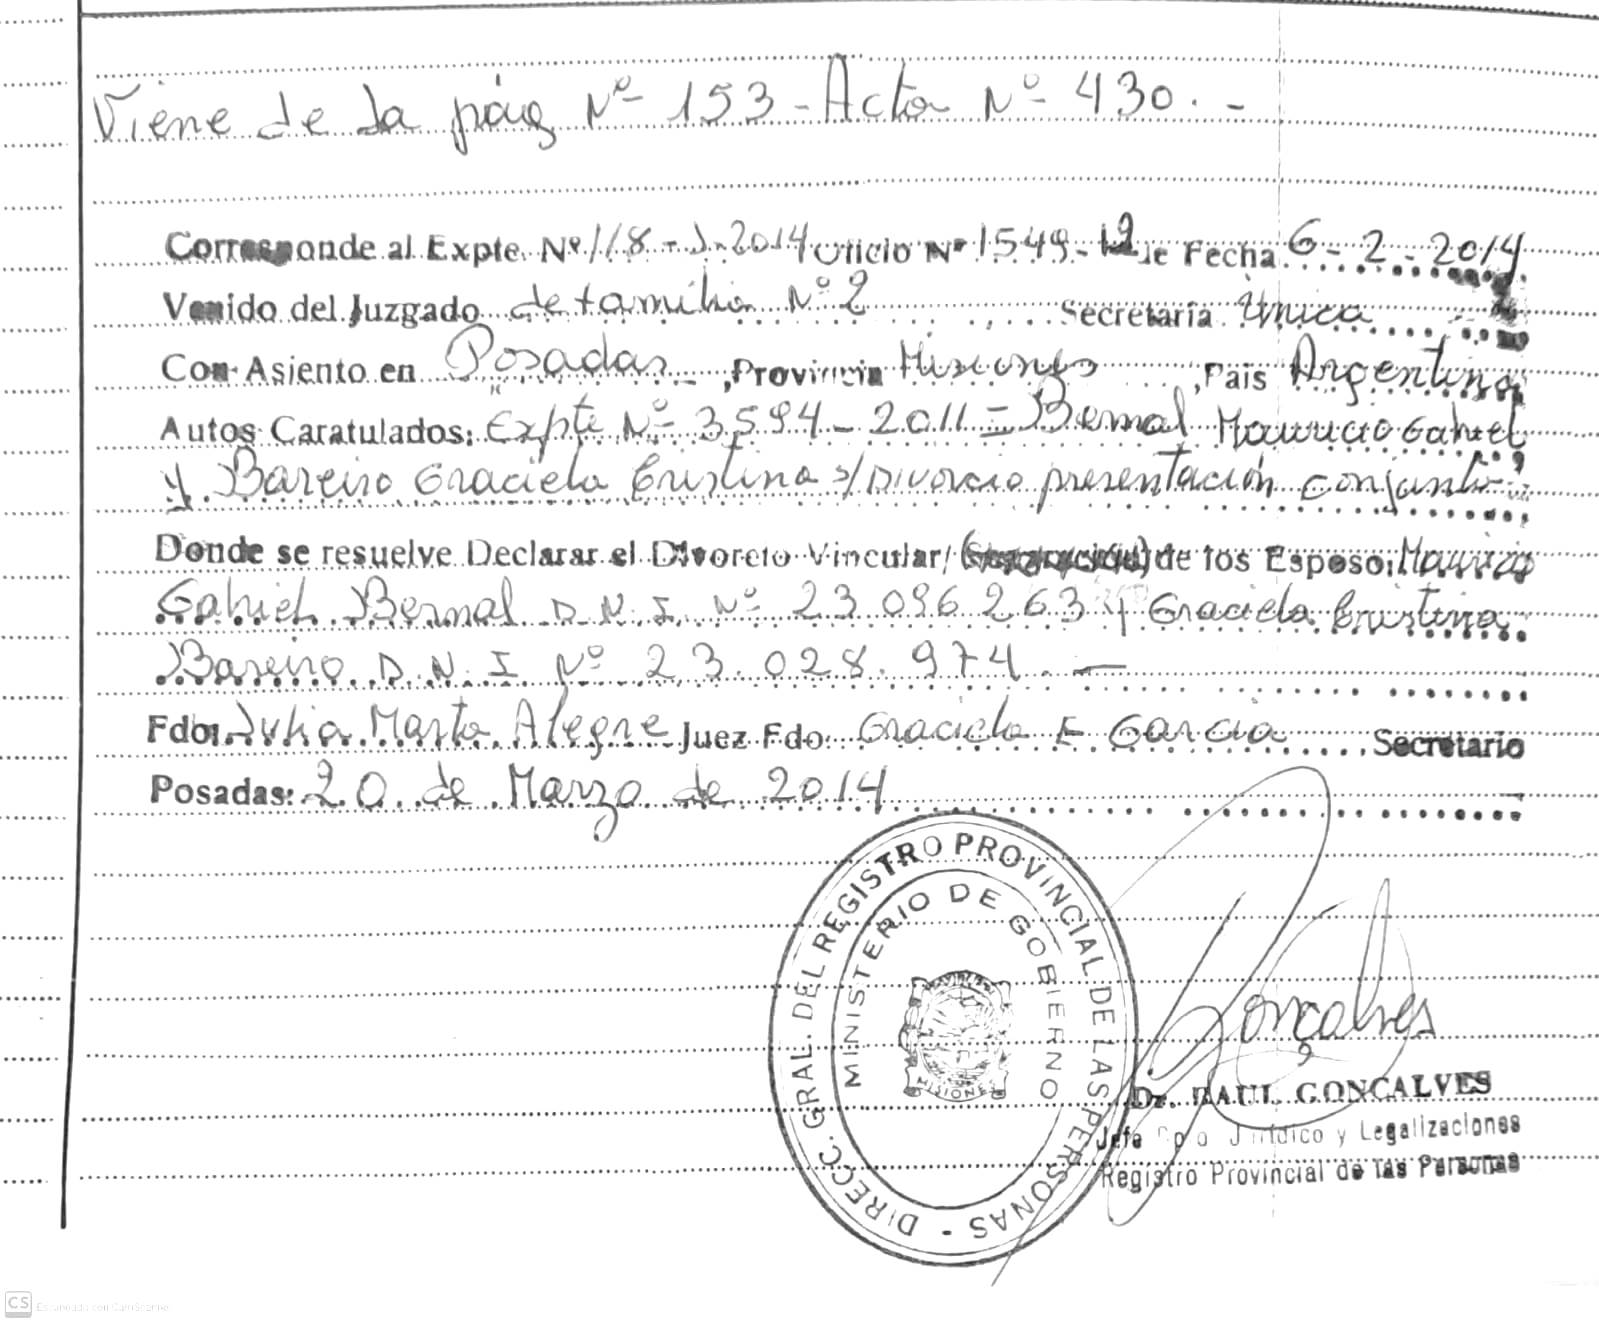 Viene de la pág Nº 153 - Acta Nº 430. -
Corresponde al Expte. Nº 118 - J - 2014 Oficio Nº 1549 - 12 de Fecha 6 - 2 - 2014
Venido del Juzgado de familia Nº 2 Secretaria Única
Con Asiento en Posadas, Provincia Misiones, Pais Argentina
Autos Caratulados: Expte Nº 3594 - 2011 = Bernal Mauricio Gabriel
y Bareiro Graciela Cristina s/ Divorcio presentación conjunta
Donde se resuelve Declarar el Divorcio Vincular/ de los Esposo: Mauricio
Gabriel Bernal D.N.I. Nº 23.096.263 y Graciela Cristina
Bareiro D.N.I Nº 23.028.974. —
Fdo: Julia Marta Alegre Juez Fdo: Graciela E Garcia Secretario
Posadas: 20 de Marzo de 2014
DIRECC. GRAL. DEL REGISTRO PROVINCIAL DE LAS PERSONAS -
MINISTERIO DE GOBIERNO
MISIONES
Gonçalves
Dr. RAUL GONCALVES
Jefe Dpto Jurídico y Legalizaciones
Registro Provincial de las Personas
CS Escaneado con CamScanner